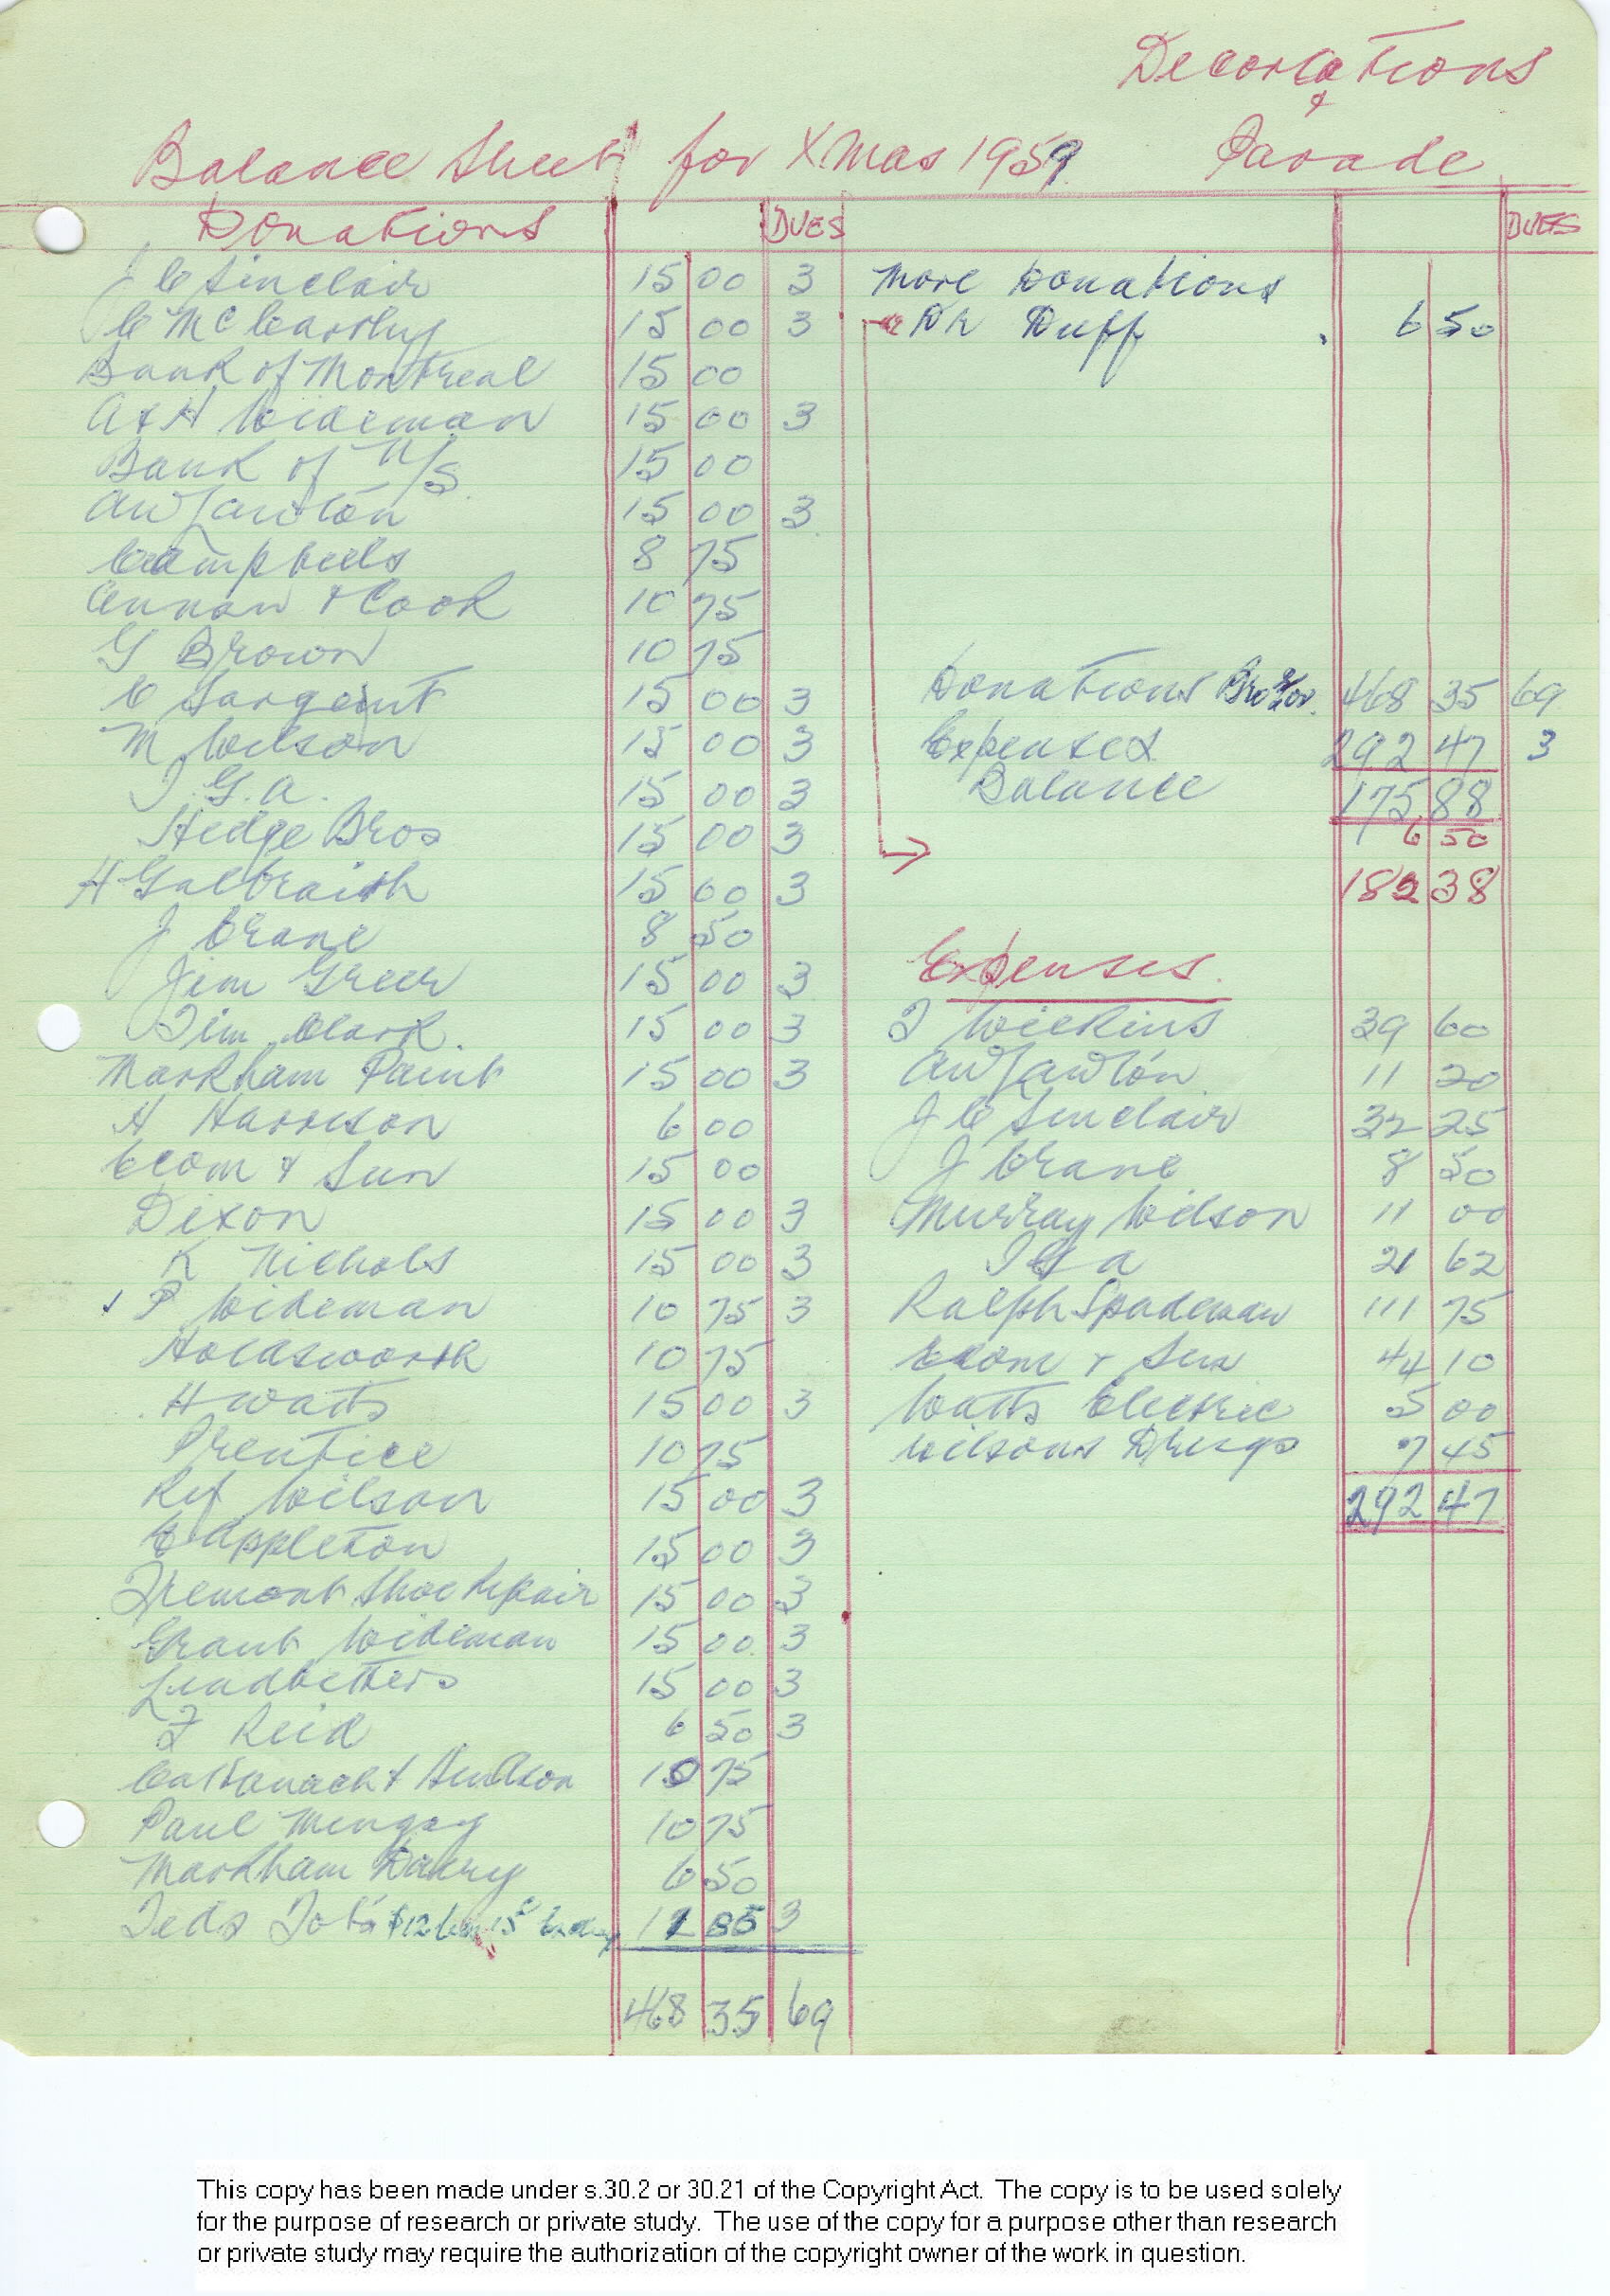 Decorations
&
Balance Sheet for XMas 1959 Parade
Donations DUES DUES
J C Sinclair 15 00 3
C McCarthy 15 00 3
Bank of Montreal 15 00
A & H Wideman 15 00 3
Bank of N/S 15 00
AW Lawton 15 00 3
Campbells 8 75
Annan & Cook 10 75
G Brown 10 75
C Sargent 15 00 3
M Wilson 15 00 3
I.G.A. 15 00 3
Hedge Bros 15 00 3
H Galbraith 15 00 3
J Crane 8 50
Jim Greer 15 00 3
Jim Clark. 15 00 3
Markham Paint 15 00 3
H Harrison 6 00
Econ & Sun 15 00
Dixon 15 00 3
K Nichols 15 00 3
P Wideman 10 75 3
Holdsworth 10 75
H Watts 15 00 3
Prentice 10 75
Rex Wilson 15 00 3
E Appleton 15 00 3
Tremont Shoe Repair 15 00 3
Grant Wideman 15 00 3
Leadbetters 15 00 3
F Reid 6 50 3
10 75
Paul Mingay 10 75
Markham Dairy 6 50
Teds 3
468 35 69
More Donations
DR Duff 6 50
Donations 468 35 69
Expenses 292 47 3
Balance 175 88
6 50
182 38
Expenses.
J Wilkins 39 60
AW Lawton 11 20
J C Sinclair 32 25
J Crane 8 50
Murray Wilson 11 00
I G A 21 62
Ralph Spademan 111 75
Econ & Sun 44 10
Watts Electric 5 00
Wilsons Drugs 7 45
292 47
This copy has been made under s.30.2 or 30.21 of the Copyright Act. The copy is to be used solely
for the purpose of research or private study. The use of the copy for a purpose other than research
or private study may require the authorization of the copyright owner of the work in question.